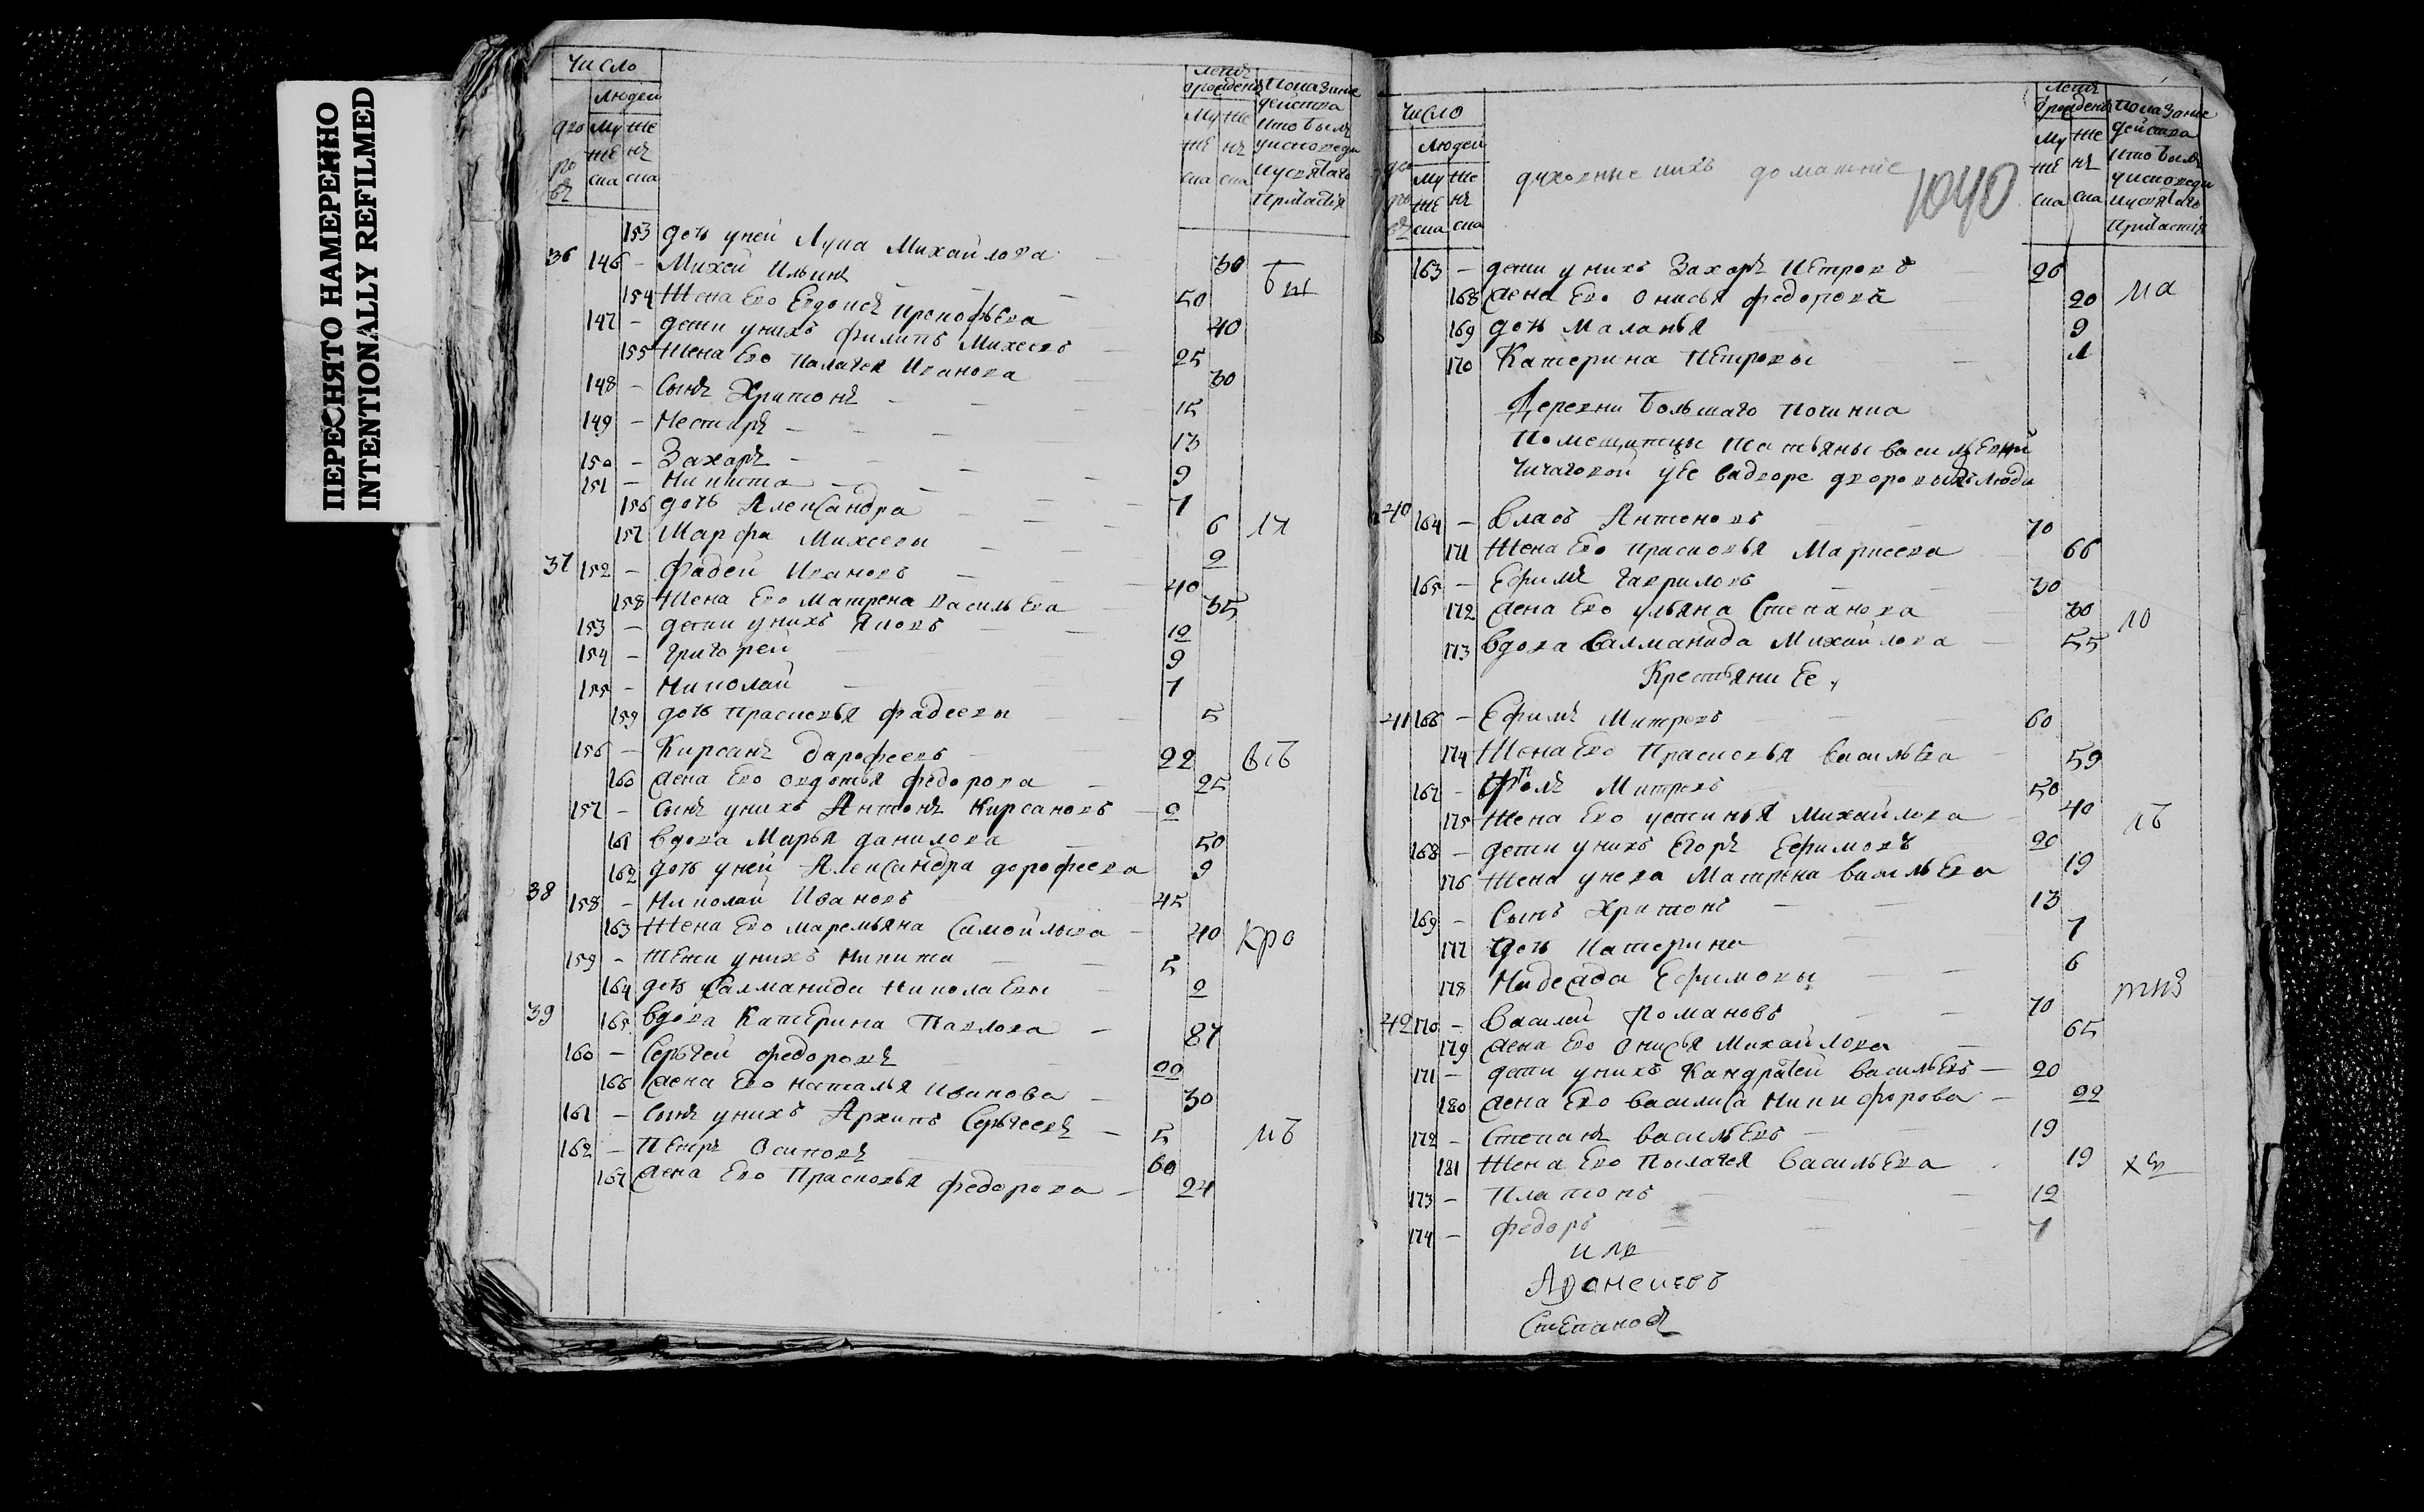 ПЕРЕСНЯТО НАМЕРЕННО
INTENTIONALLY REFILMED
Число
Людей
дво му же
ро же нъ
въ ска ска
Летъ
отрождения
му же
же нъ
ска ска
Показание
действа
кто былъ
уисповеди
иусвятаго
Причастiя
153 дочь уней Лука Михайлова 30
36 146 Михей Ильинъ 50
154 Жена Ево Евдокея Прокофьева 40
147 дети унихъ Филипъ Михеевъ 25
155 Жена Ево Палагея Иванова 30
148 Сынъ Харитонъ 15
149 Нестиръ 13
150 Захаръ 9
151 Никита 7
156 дочь Александра 6
157 Марфа Михеевы 2
37 152 Фадей Ивановъ 40
158 Жена Ево Матрена Васильева 35
153 дети унихъ Яковъ 12
154 Григорей 9
155 Николай 7
159 дочь Прасковья Фадеевы 5
156 Кирсанъ Дарофеевъ 22
160 Жена Ево Овдотья Федорова 25
157 Сынъ унихъ Антонъ Кирсановъ 2
161 Вдова Марья Данилова 50
162 дочь уней Александра дорофеева 9
38 158 Николай Ивановъ 45
163 Жена Ево Маремьяна Самойлова 40
159 дети унихъ Никита 5
164 дочь Салманида Николаевы 2
39 165 Вдова Катерина Павлова 87
160 Сергей Федоровъ 22
166 Жена Ево Наталья Иванова 30
161 Сынъ унихъ Архипъ Сергеевъ 5
162 Петръ Осиповъ 60
167 Жена Ево Прасковья Федорова 24
Число
Людей
дво му же
ро же нъ
въ ска ска
духовные ихъ домашние
1040
Летъ
отрождения
му же
же нъ
ска ска
Показание
действа
кто былъ
уисповеди
иусвятаго
Причастiя
163 дети унихъ Захаръ Петровъ 26
168 Жена Ево Онисья Федорова 20
169 дочь Маланья 9
170 Катерина Петровы
Деревни Большаго Починка
Помещицы Татьяны Васильевны
Чичаговой уее вадворе дворовыхъ люди
40 164 Власъ Антоновъ 70
171 Жена Ево Прасковья Маркеева 66
165 Ефимъ Гавриловъ 30
172 Жена Ево Ульяна Степанова 30
173 Вдова Салманида Михайлова 55
Крестьяни Ее
41 166 Ефимъ Митревъ 60
174 Жена Ево Прасковья Васильева 59
167 Митревъ 50
175 Жена Ево Устинья Михайлова 40
168 дети унихъ Егоръ Ефимовъ 20
176 Жена унева Матрена Васильева 19
169 Сынъ Харитонъ 13
177 дочь Катерина 7
178 Надежда Ефимовы 6
42 170 Василей Романовъ 70
179 Жена Ево Онисья Михайлова 65
171 дети унихъ Кандратей Васильевъ 20
180 Жена Ево Василиса Никифорова 22
172 Степанъ Васильевъ 19
181 Жена Ево Палагея Васильева 19
173 Платонъ 12
174 Федоръ 7
Степановъ